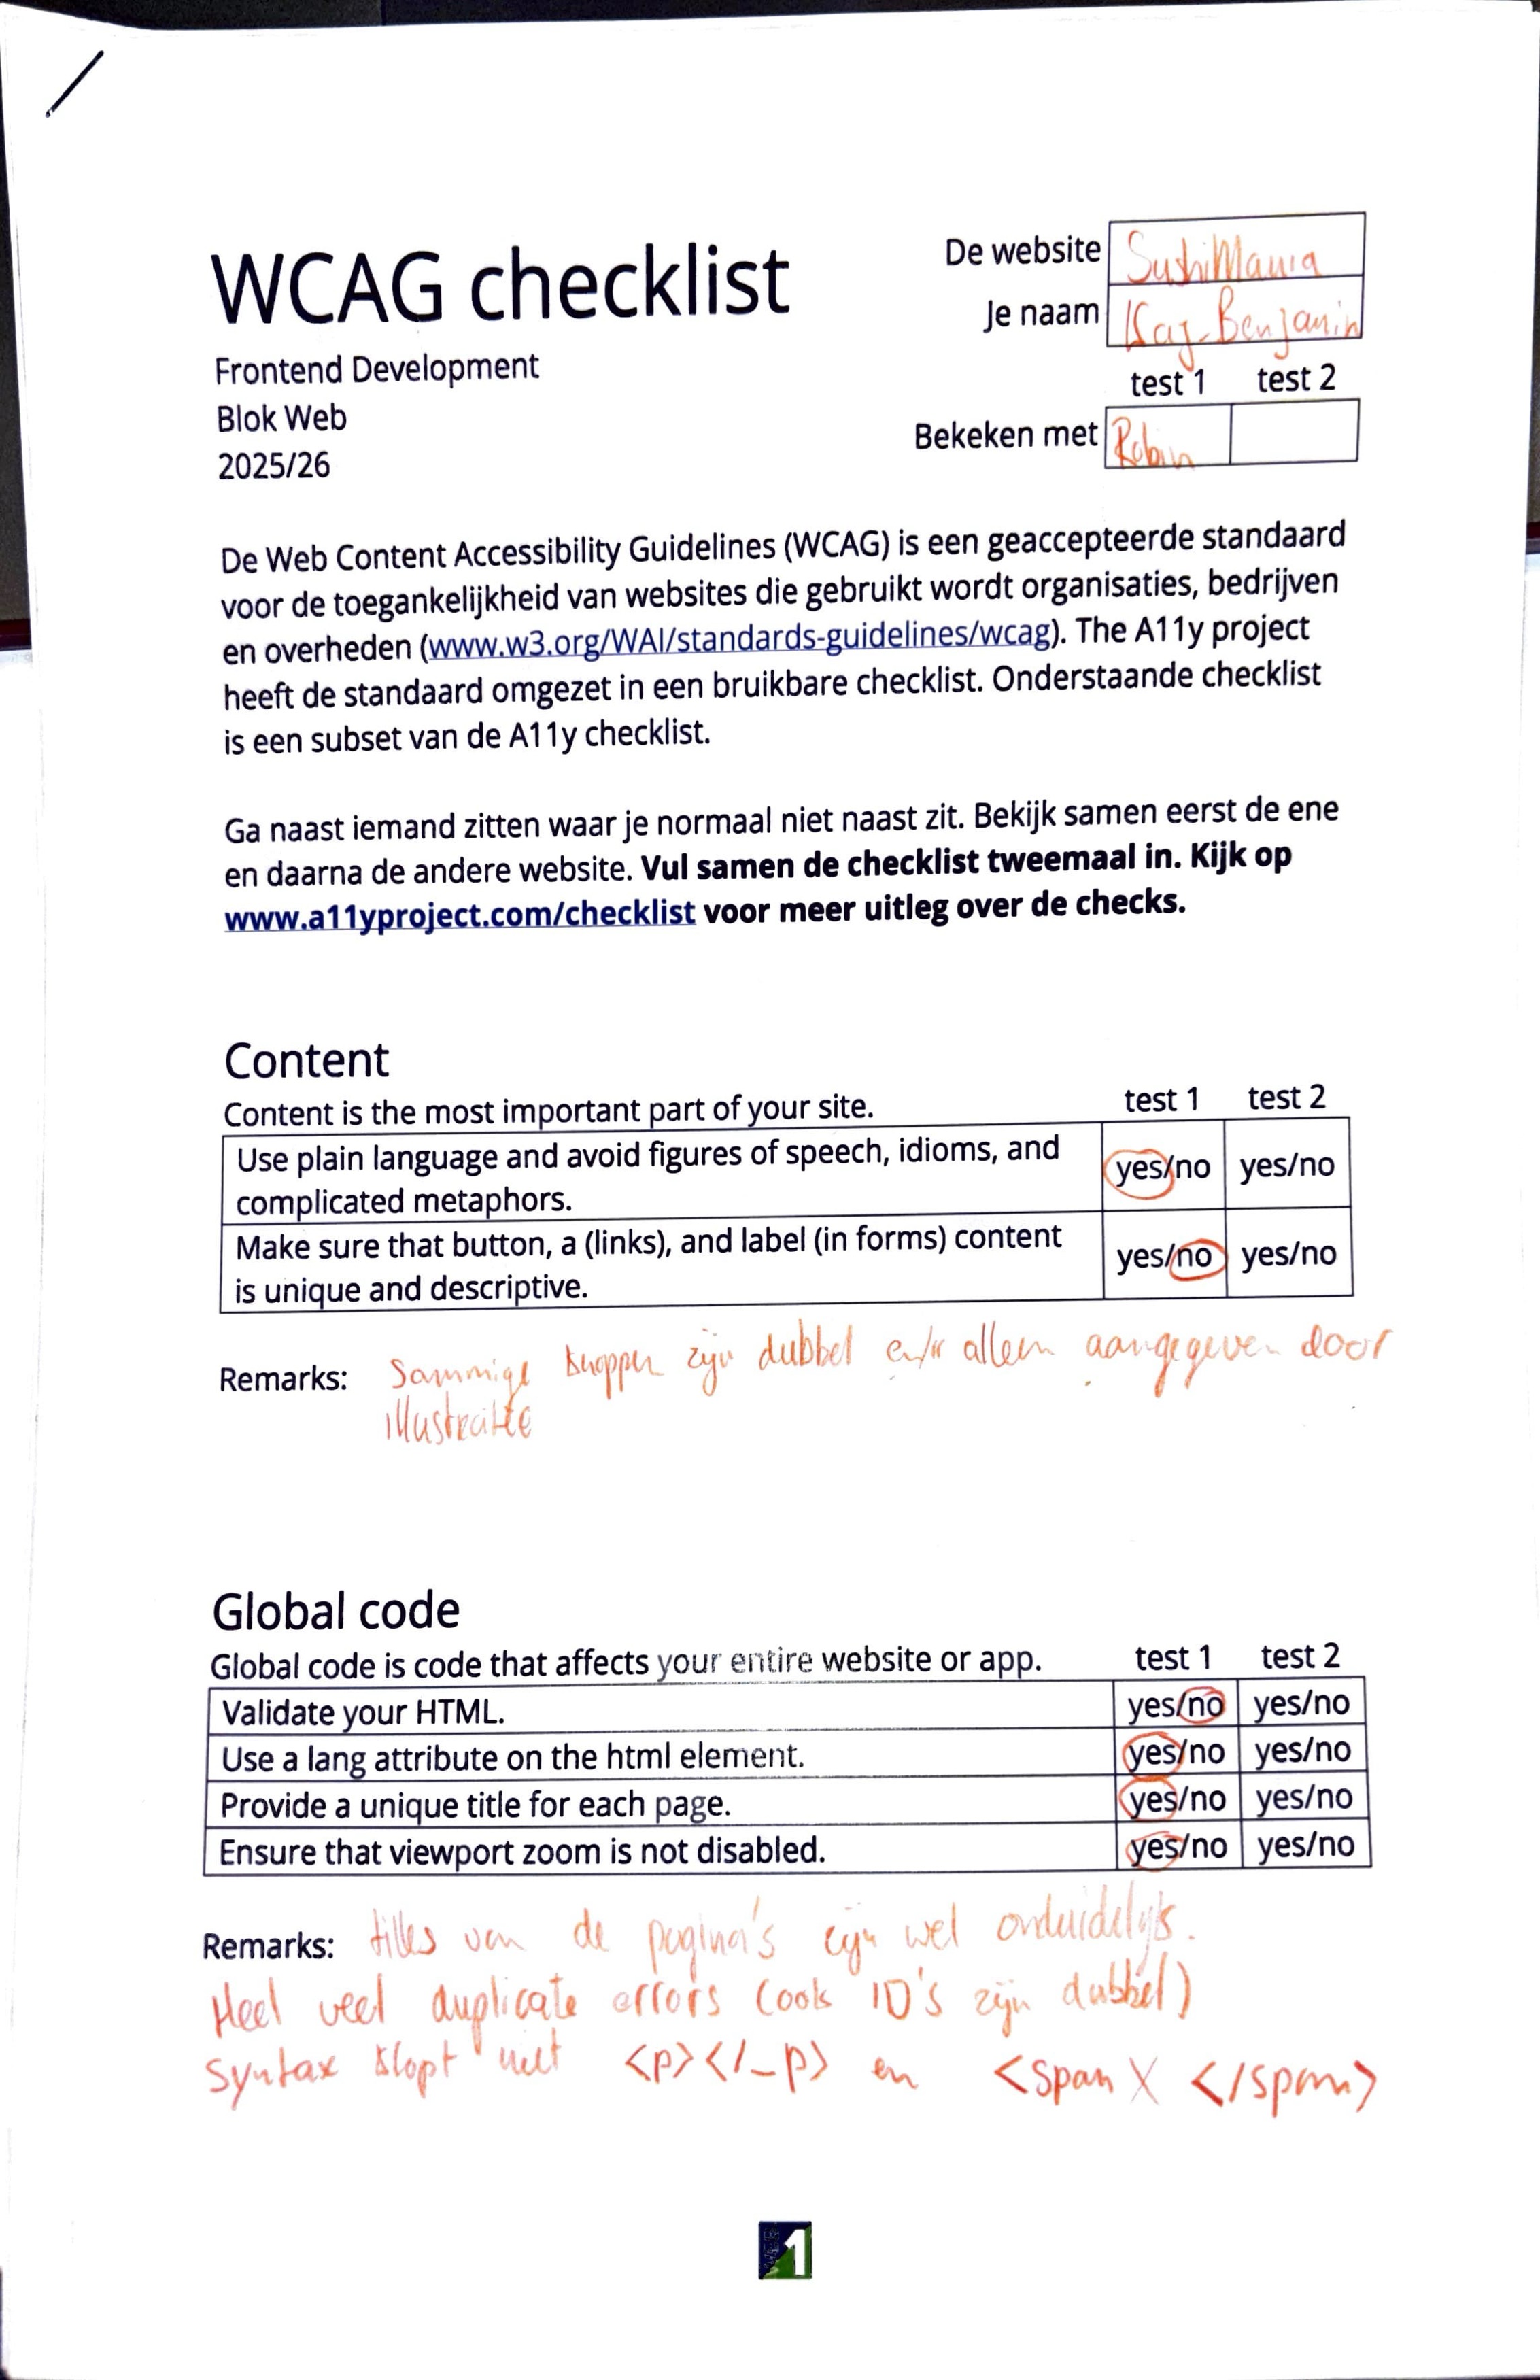 WCAG checklist
Frontend Development
Blok Web
2025/26
De website SushiMania
Je naam Kaj-Benjamin
test 1 test 2
Bekeken met Robin
De Web Content Accessibility Guidelines (WCAG) is een geaccepteerde standaard
voor de toegankelijkheid van websites die gebruikt wordt organisaties, bedrijven
en overheden (www.w3.org/WAI/standards-guidelines/wcag). The A11y project
heeft de standaard omgezet in een bruikbare checklist. Onderstaande checklist
is een subset van de A11y checklist.
Ga naast iemand zitten waar je normaal niet naast zit. Bekijk samen eerst de ene
en daarna de andere website. Vul samen de checklist tweemaal in. Kijk op
www.a11yproject.com/checklist voor meer uitleg over de checks.
Content
Content is the most important part of your site. test 1 test 2
Use plain language and avoid figures of speech, idioms, and
complicated metaphors. yes/no yes/no
Make sure that button, a (links), and label (in forms) content
is unique and descriptive. yes/no yes/no
Remarks: Sommige knoppen zijn dubbel en/of alleen aangegeven door
illustratie
Global code
Global code is code that affects your entire website or app. test 1 test 2
Validate your HTML. yes/no yes/no
Use a lang attribute on the html element. yes/no yes/no
Provide a unique title for each page. yes/no yes/no
Ensure that viewport zoom is not disabled. yes/no yes/no
Remarks: titles van de pagina's zijn wel onduidelijk.
Heel veel duplicate errors (ook ID's zijn dubbel)
Syntax klopt niet <p></_p> en <span X </span>
1